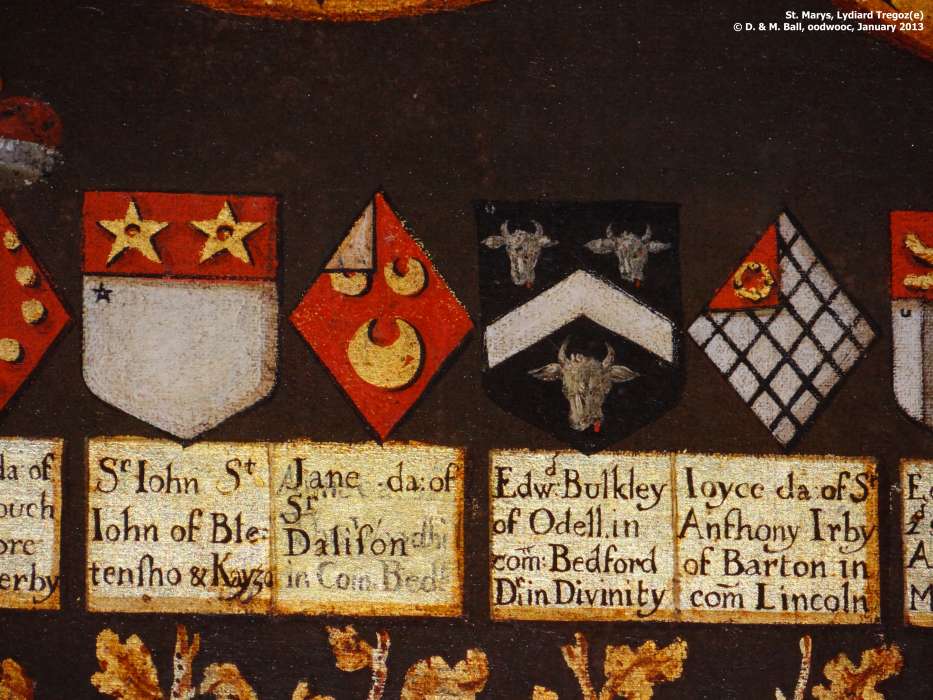 St. Marys, Lydiard Tregoz(e)
© D. & M. Ball, oodwooc, January 2013
da of
ouch
ore
erby
Sr Iohn St
Iohn of Ble:
tenſho & Kayzo
Jane da: of
Sr
Daliſon
in Com. Bedf
Edwd: Bulkley
of Odell. in
com̄: Bedford
Dr. in Divinity
Ioyce da: of Sr
Anſhony Irby
of Barton in
com̄ Lincoln
E
A
M